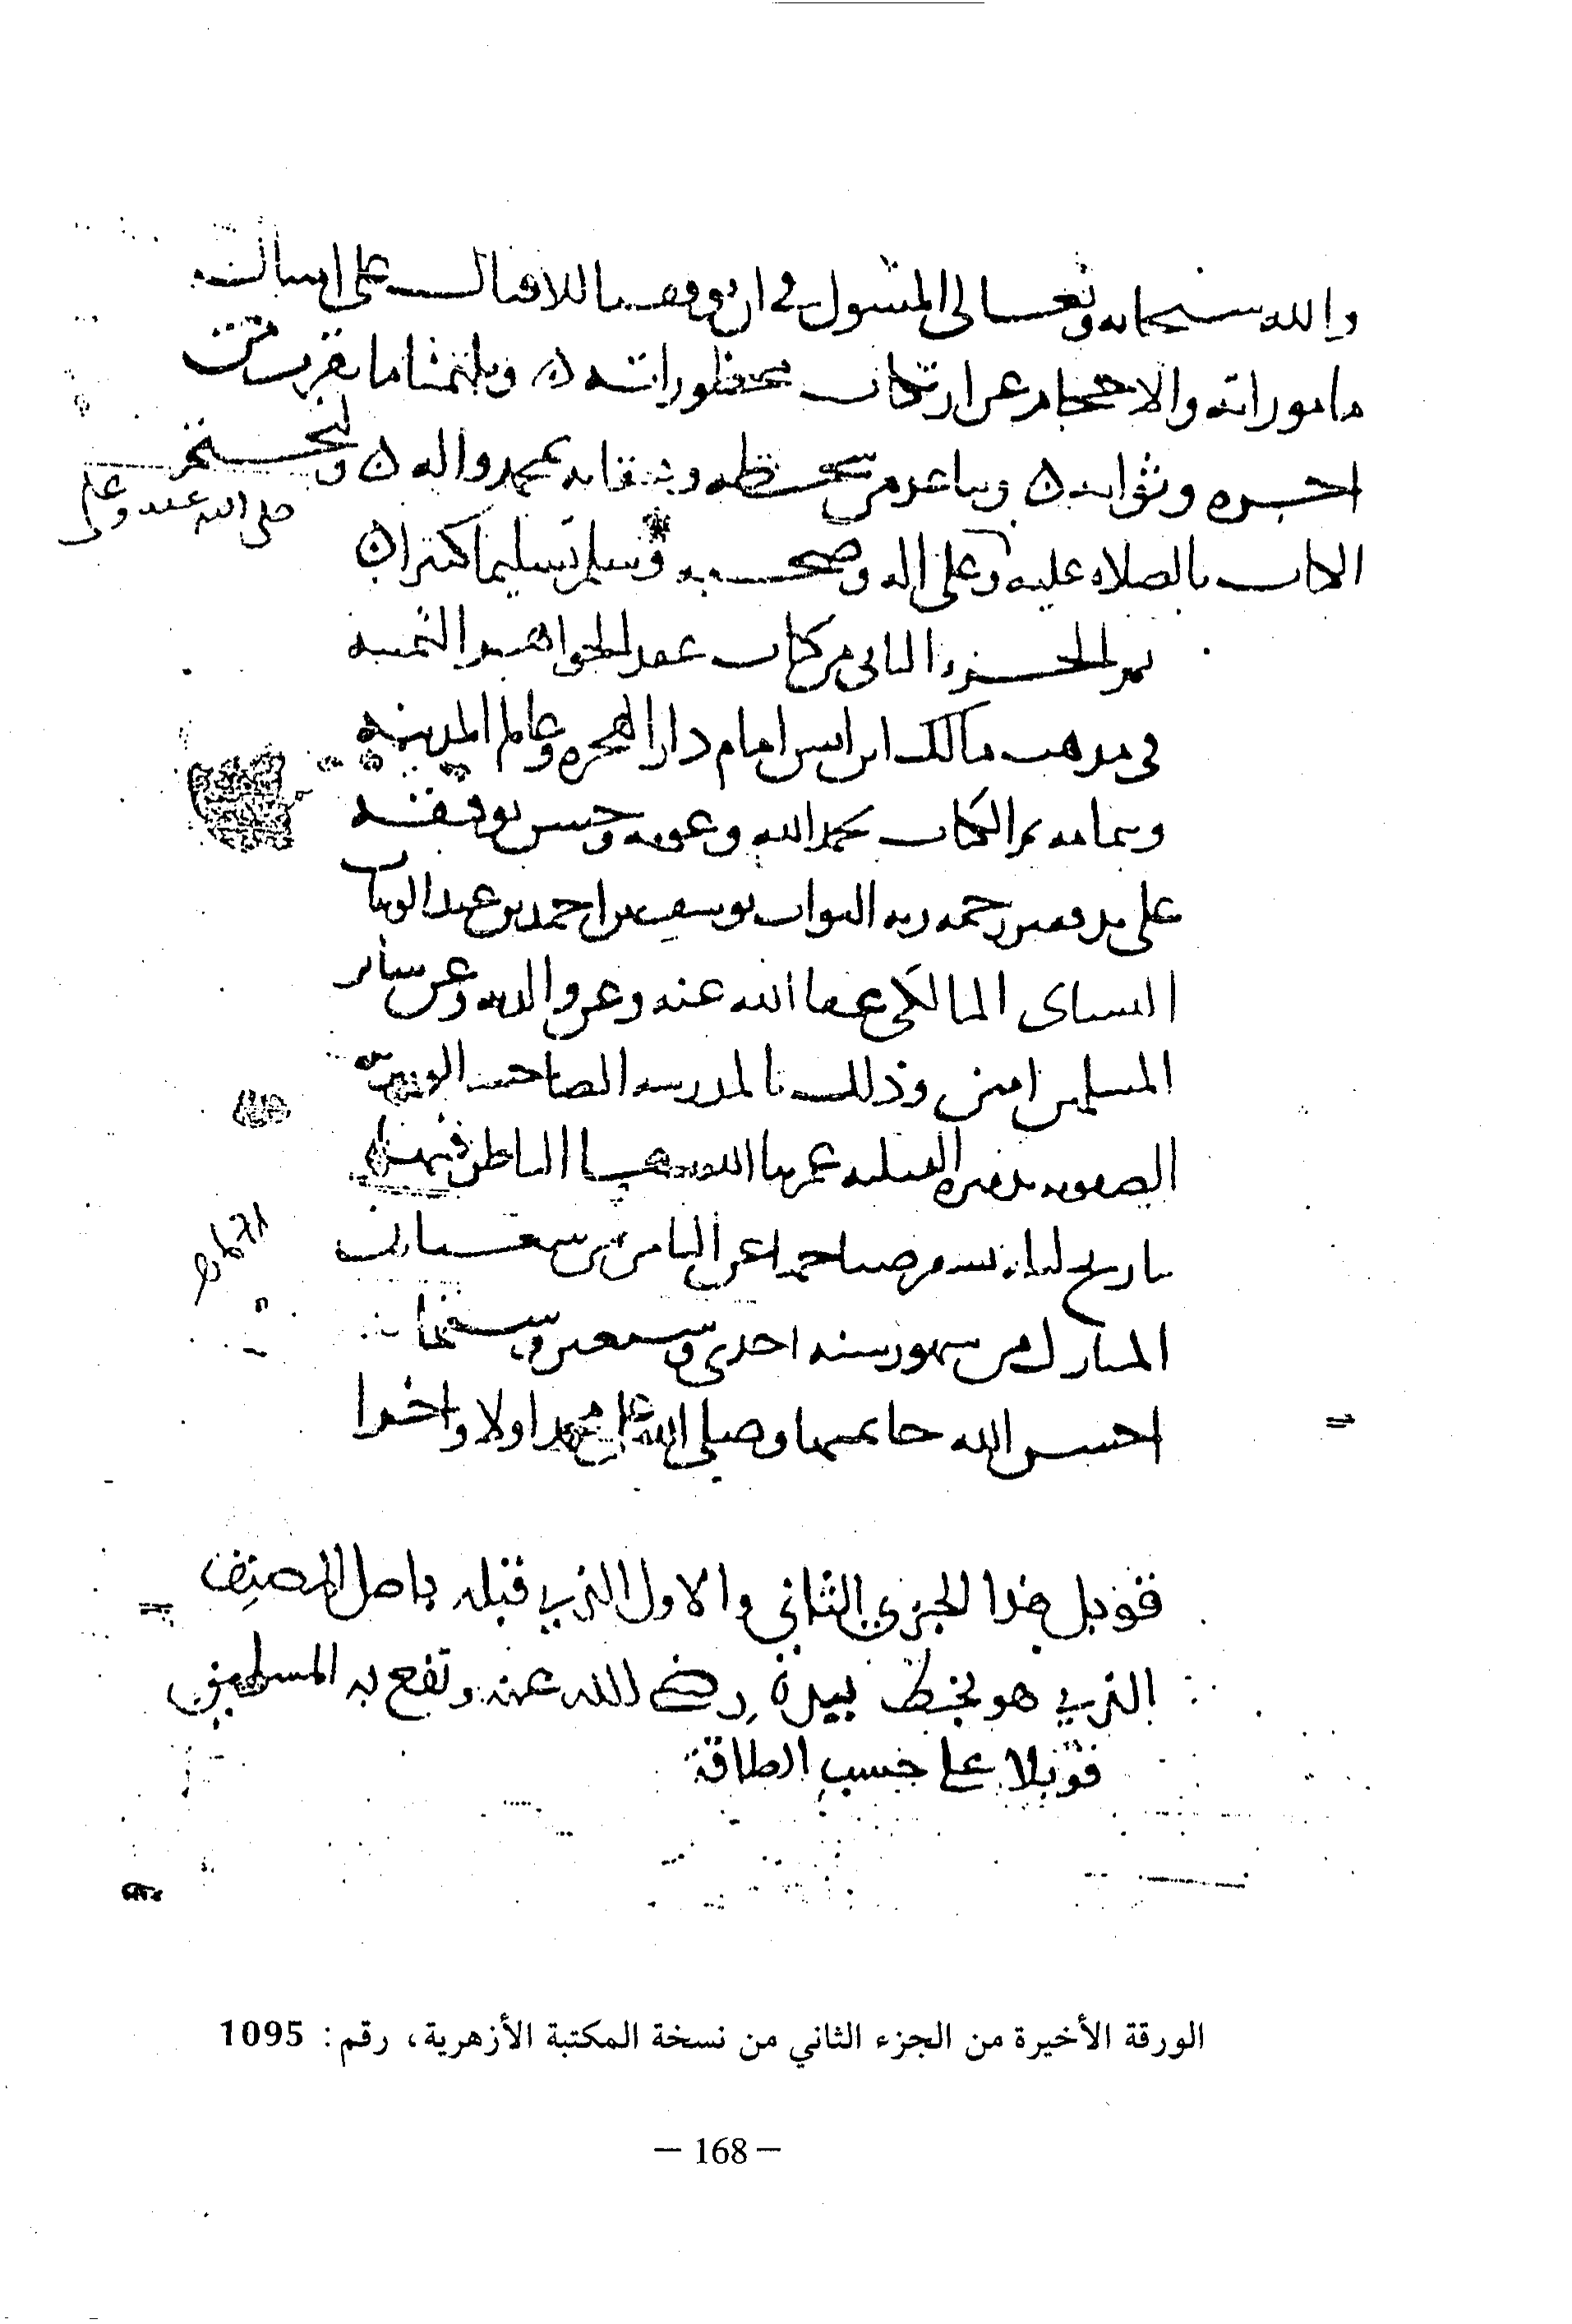 والله سبحانه وتعالى المسول في ان يوفقنا للاقبال على امتثال
ماموراته والاحجام عن ارتكاب محظوراته ويلهمنا ما يقرب من
اجره وثوابه ويباعد من سخطه وعقابه بمحمد واله ولنختم
صلى الله عليه وعلى
الكتاب بالصلاه عليه وعلى اله وصحبه وسلم تسليما كثيرا
تم الجزء الثاني من كتاب عقد الجواهر الثمينه
في مذهب مالك ابن انس امام دار الهجره وعالم المدينه
وبتمامه تم الكتاب بحمد الله وعونه وحسن توفيقه
على يد فقير رحمه ربه التواب يوسف بن احمد بن عبد الوهاب
المالكي عفا الله عنه وعن والديه وعن ساير
المسلمين امين وذلك بالمدرسه الصاحبيه
عمرها الله
بتاريخ من شعبان
المبارك من شهور سنه احدى وسبعين وستمايه
احسن الله خاتمتها وصلى الله على محمد اولا واخرا
٦٧١
قوبل هذا الجزئ الثاني والاول الذي قبله باصل المصنف
الذي هو بخط يده رضي الله عنه ونفع به المسلمين
قوبلا على حسب الطاقة
الورقة الأخيرة من الجزء الثاني من نسخة المكتبة الأزهرية، رقم: 1095
– 168 –